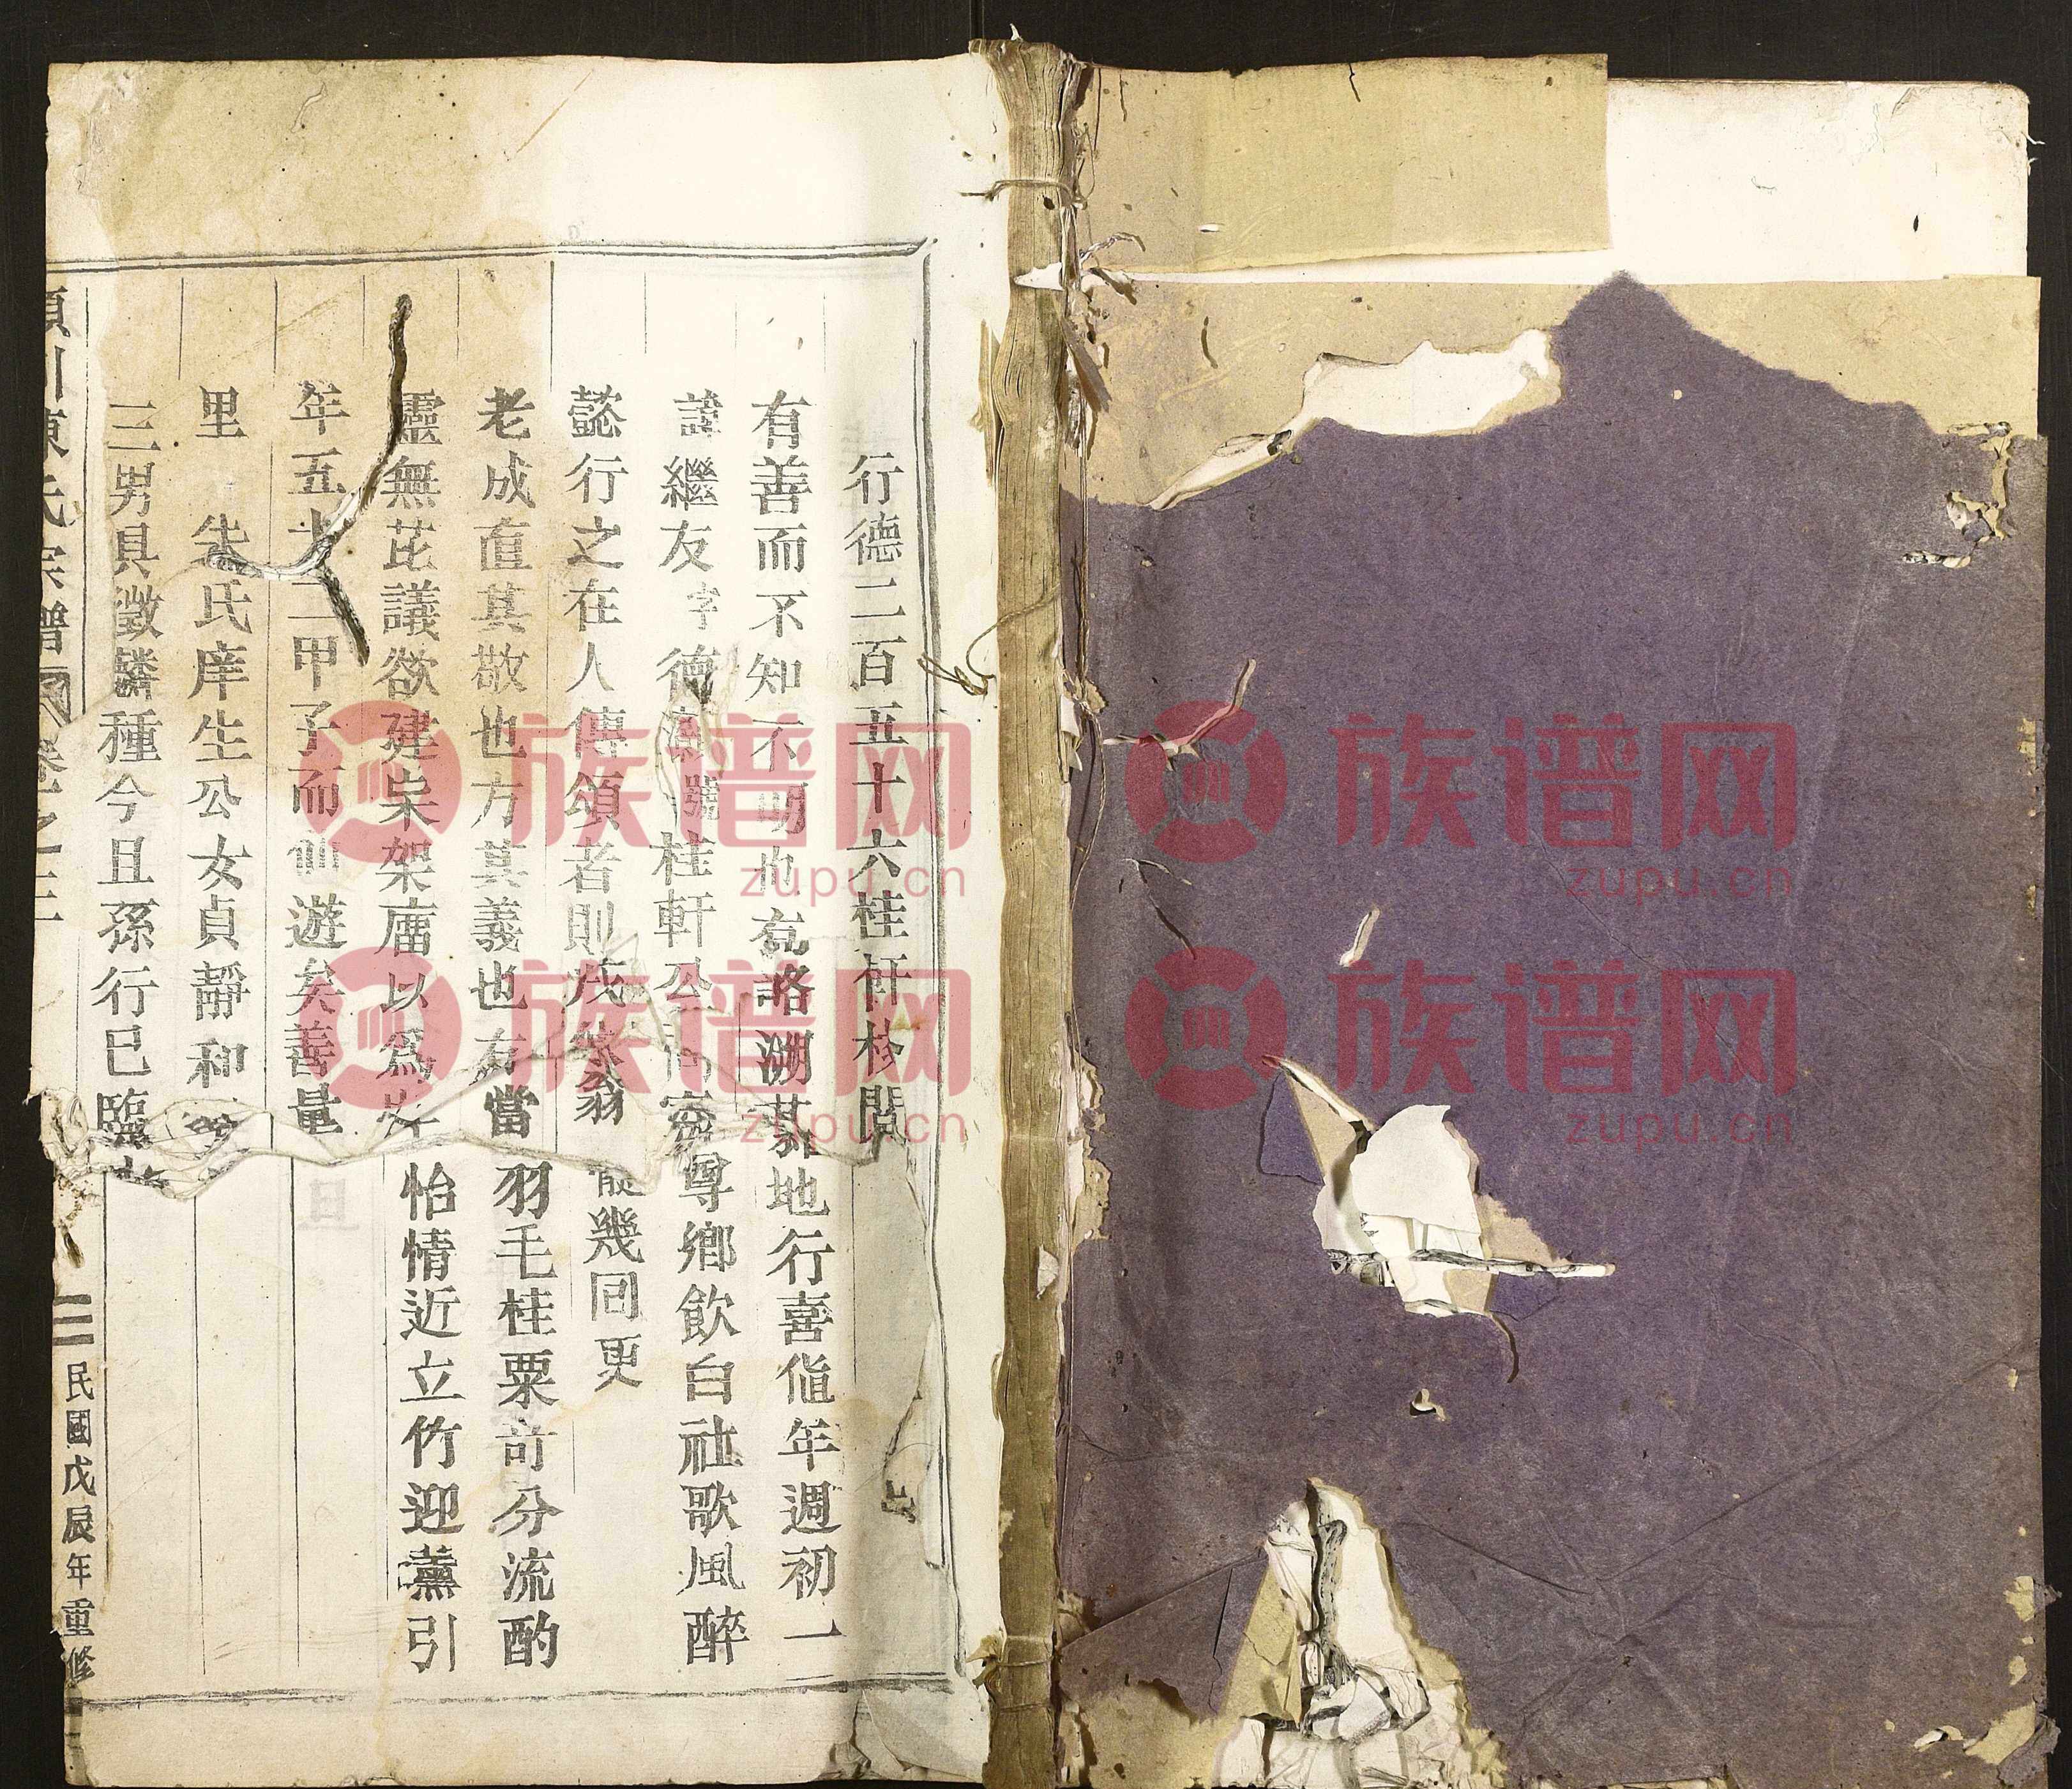 行德二百五十六桂軒杉閣
有善而不知不明也竟略溯其地行喜偹年週初一
諱繼友字德號桂軒公尚齒尊鄉飲白社歌風醉
懿行之在人傳頌者則戊幾回更
老成直其敬也方其義也有當羽毛桂粟訶分流酌
靈無芘議欲建杗架庿以爲怡情近立竹迎薰引
年五十二甲子而仙遊矣善量
里朱氏庠生公女貞靜和
三男具徵麟種今且孫行已臨
川陳氏宗譜卷之三 三 民國戊辰年重修
族谱网
zupu.cn
族谱网
zupu.cn
族谱网
zupu.cn
族谱网
zupu.cn